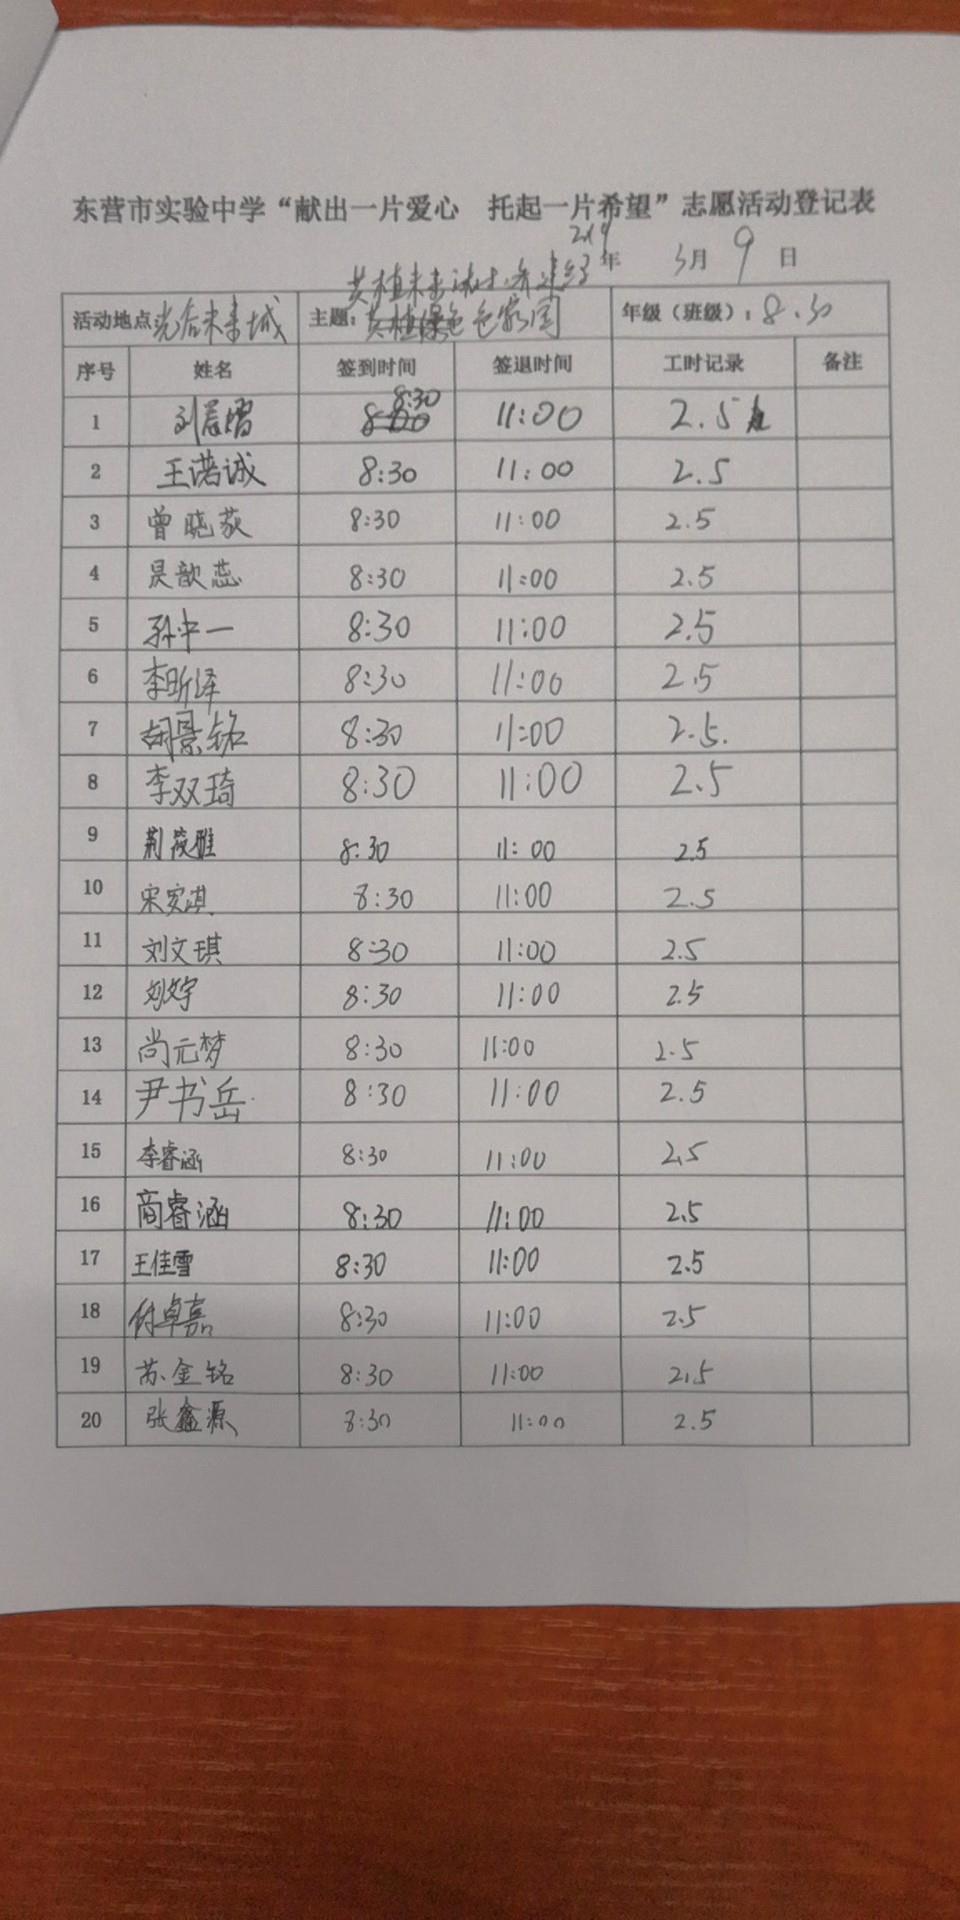 东营市实验中学“献出一片爱心 托起一片希望”志愿活动登记表
2019年 3月9日
共植未来 共建绿
活动地点 未来城 主题： 色家园 年级（班级）：8.30
序号 姓名 签到时间 签退时间 工时记录 备注
1 刘 8:30 11:00 2.5
2 王诺诚 8:30 11:00 2.5
3 曾晓荻 8:30 11:00 2.5
4 吴歆蕊 8:30 11:00 2.5
5 孙中一 8:30 11:00 2.5
6 李昕泽 8:30 11:00 2.5
7 胡景铭 8:30 11:00 2.5.
8 李双琦 8:30 11:00 2.5
9 荆筱雅 8:30 11:00 2.5
10 宋安淇 8:30 11:00 2.5
11 刘文琪 8:30 11:00 2.5
12 刘 8:30 11:00 2.5
13 尚元梦 8:30 11:00 2.5
14 尹书岳 8:30 11:00 2.5
15 李睿涵 8:30 11:00 2.5
16 商睿涵 8:30 11:00 2.5
17 王佳雪 8:30 11:00 2.5
18 付卓嘉 8:30 11:00 2.5
19 苏金铭 8:30 11:00 2.5
20 张鑫源 8:30 11:00 2.5